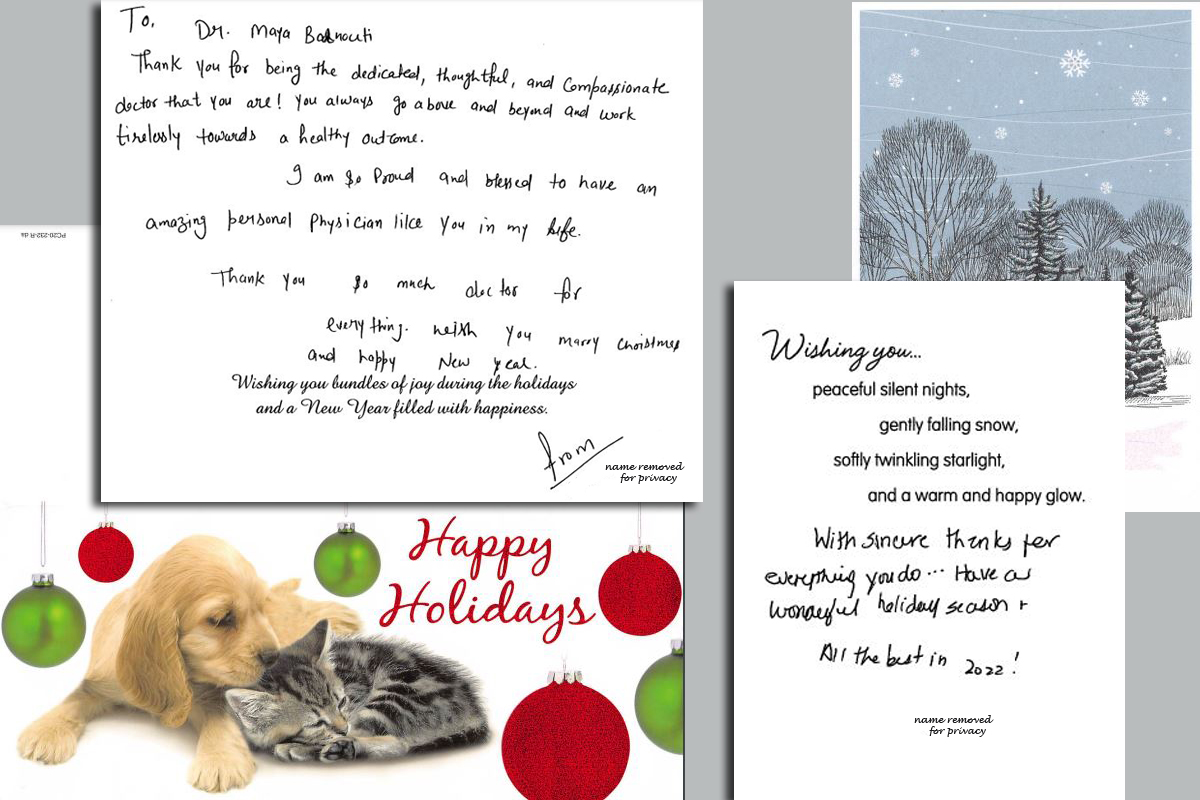 To,
Dr. Maya
Thank you for being the dedicated, thoughtful, and Compassionate
doctor that you are! You always go above and beyond and work
tirelessly towards a healthy outcome.
I am so Proud and blessed to have an
amazing personal Physician like you in my life.
Thank you so much doctor for
everything. you marry christmas
and happy New year.
Wishing you bundles of joy during the holidays
and a New Year filled with happiness.
from
name removed
for privacy
PC20-232-R
Happy
Holidays
Wishing you...
peaceful silent nights,
gently falling snow,
softly twinkling starlight,
and a warm and happy glow.
With sincere thanks for
everything you do... Have a
wonderful holiday season +
All the best in 2022!
name removed
for privacy